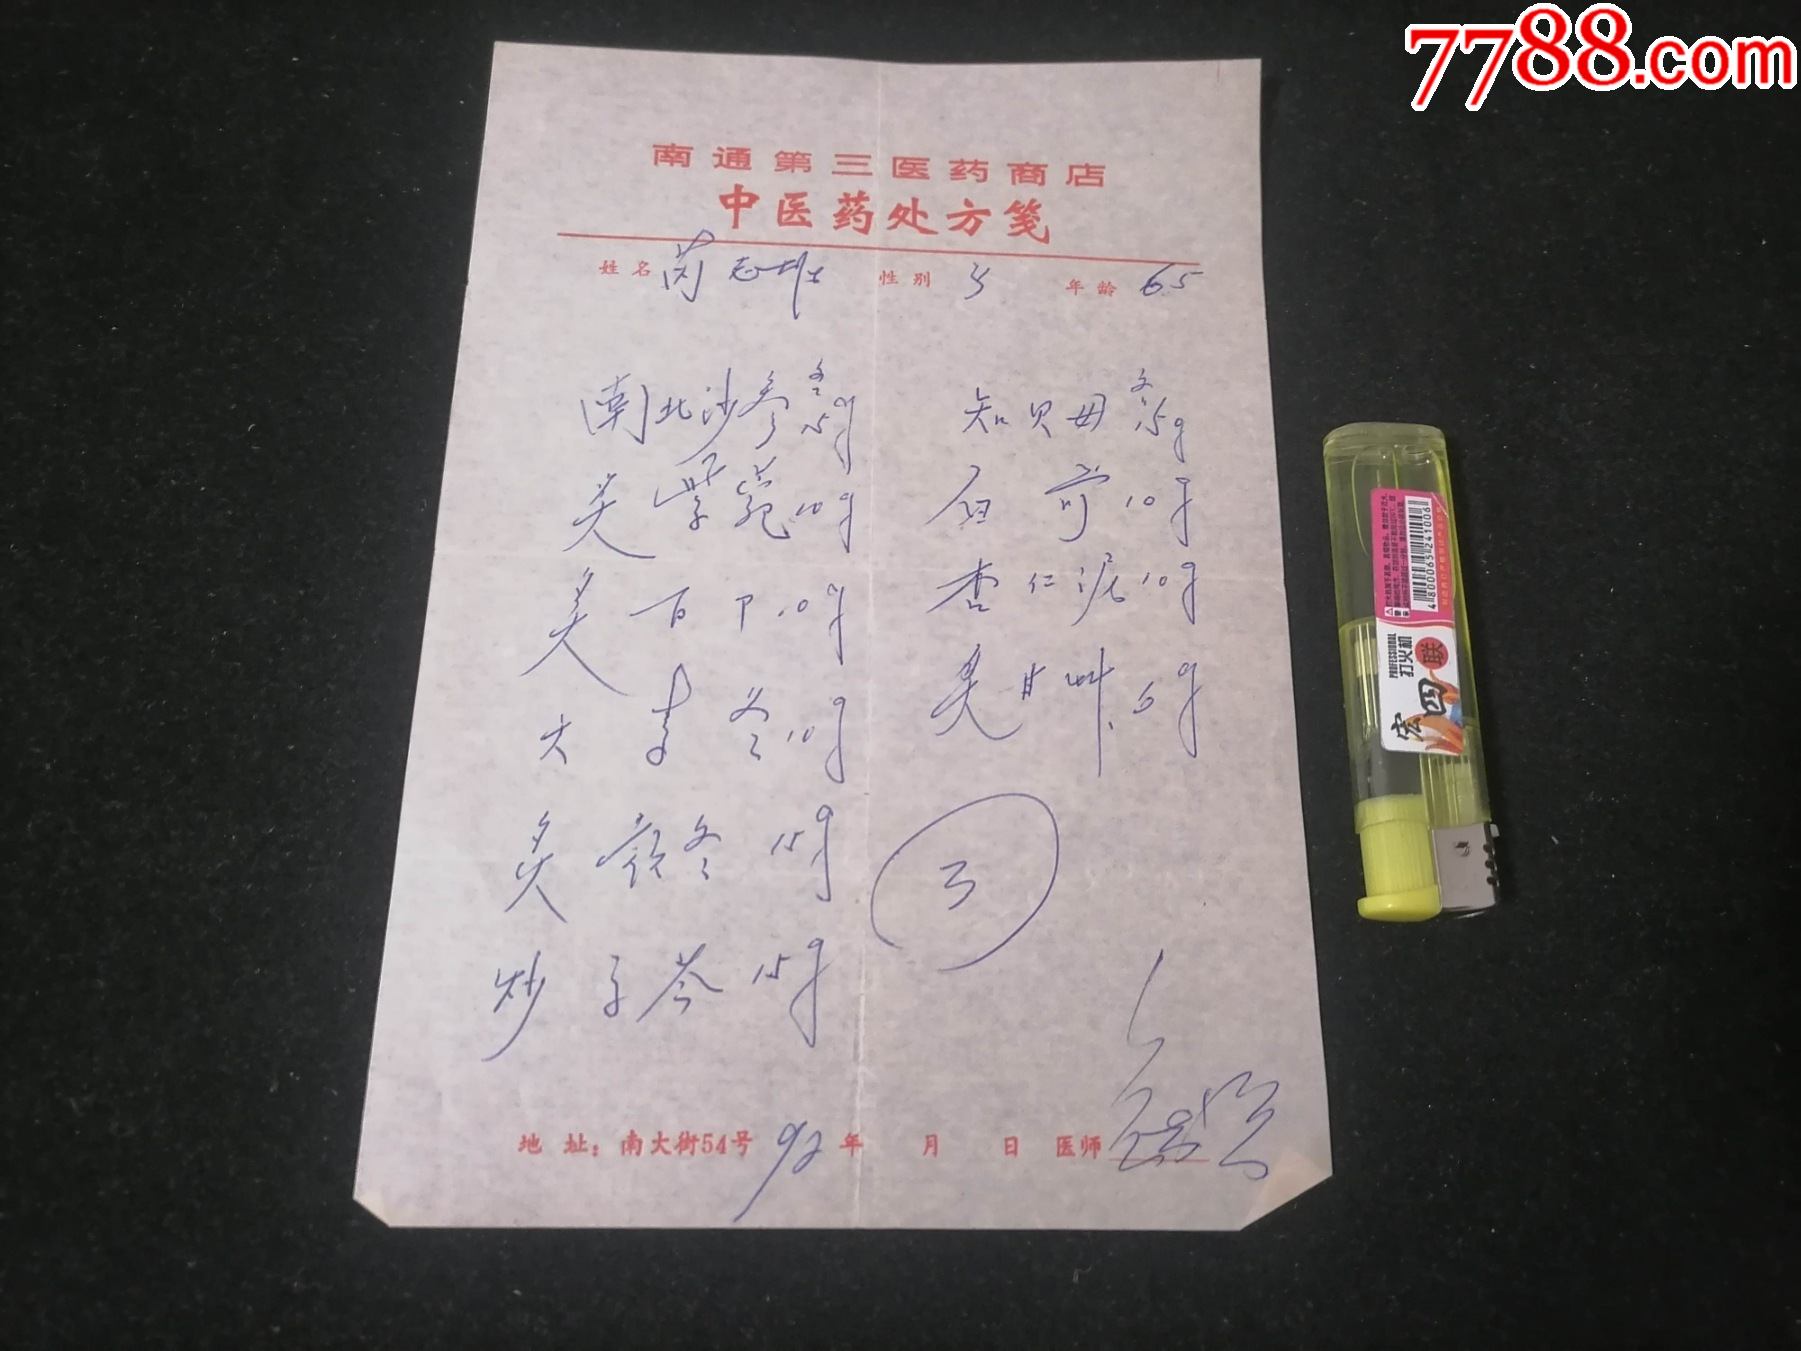 7788.com
南通第三医药商店
中医药处方笺
姓名 芮志 性别 年龄 65
南北沙参各15g
炙紫菀10g
炙百卩10g
大麦冬10g
炙款冬15g
炒子芩15g
知贝母各15g
白前10g
杏仁泥10g
炙甘艸5g
3
地址：南大街54号 92年 月 日 医师
PROFESSIONAL
打火机
宏四联
4800065241006